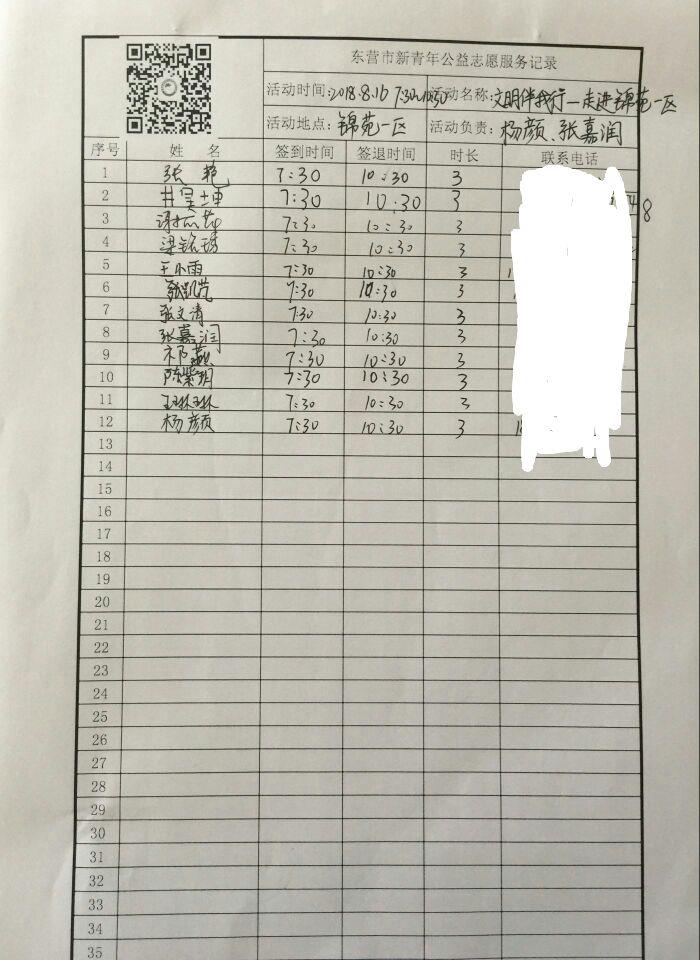 东营市新青年公益志愿服务记录
活动时间:2018.8.16 7:30-10:30 活动名称:文明伴我行—走进锦苑一区
活动地点:锦苑一区 活动负责:杨颜、张嘉润
序号 姓 名 签到时间 签退时间 时长 联系电话
1 张艳 7:30 10:30 3
2 井昊坤 7:30 10:30 3
3 7:30 10:30 3
4 梁铭琇 7:30 10:30 3
5 王小雨 7:30 10:30 3
6 张凯艺 7:30 10:30 3
7 张文清 7:30 10:30 3
8 张嘉润 7:30 10:30 3
9 祁薇 7:30 10:30 3
10 陈紫玥 7:30 10:30 3
11 王琳琳 7:30 10:30 3
12 杨颜 7:30 10:30 3
13
14
15
16
17
18
19
20
21
22
23
24
25
26
27
28
29
30
31
32
33
34
35